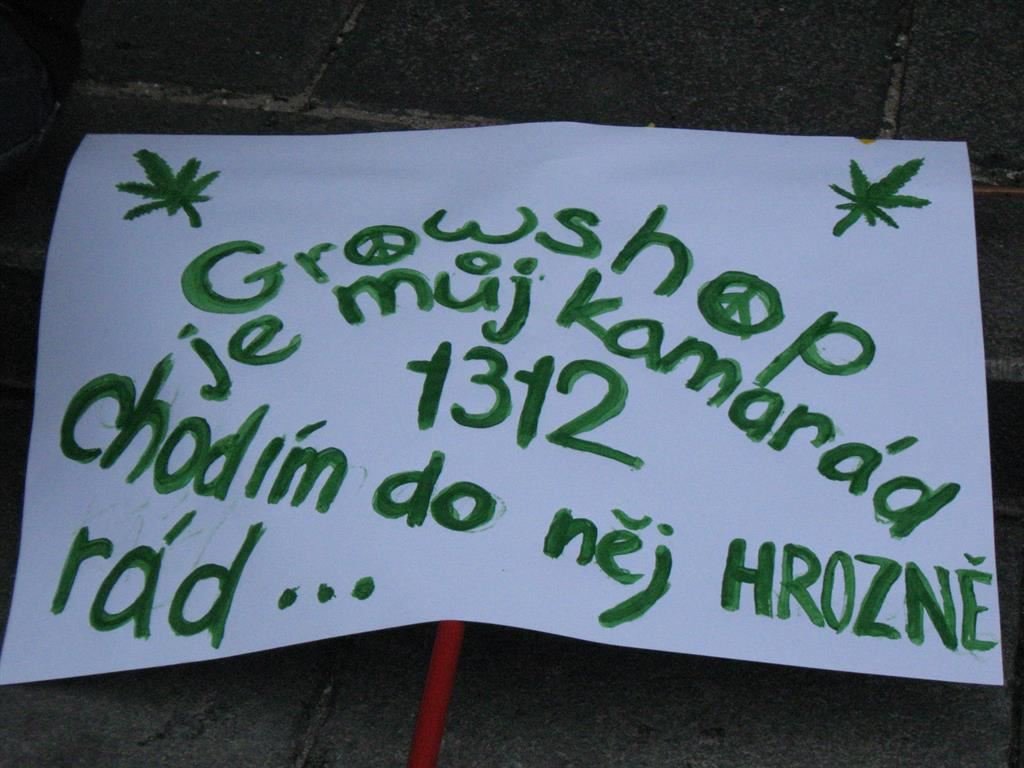 Growshop
je můj kamarád
1312
chodím do něj HROZNĚ
rád...